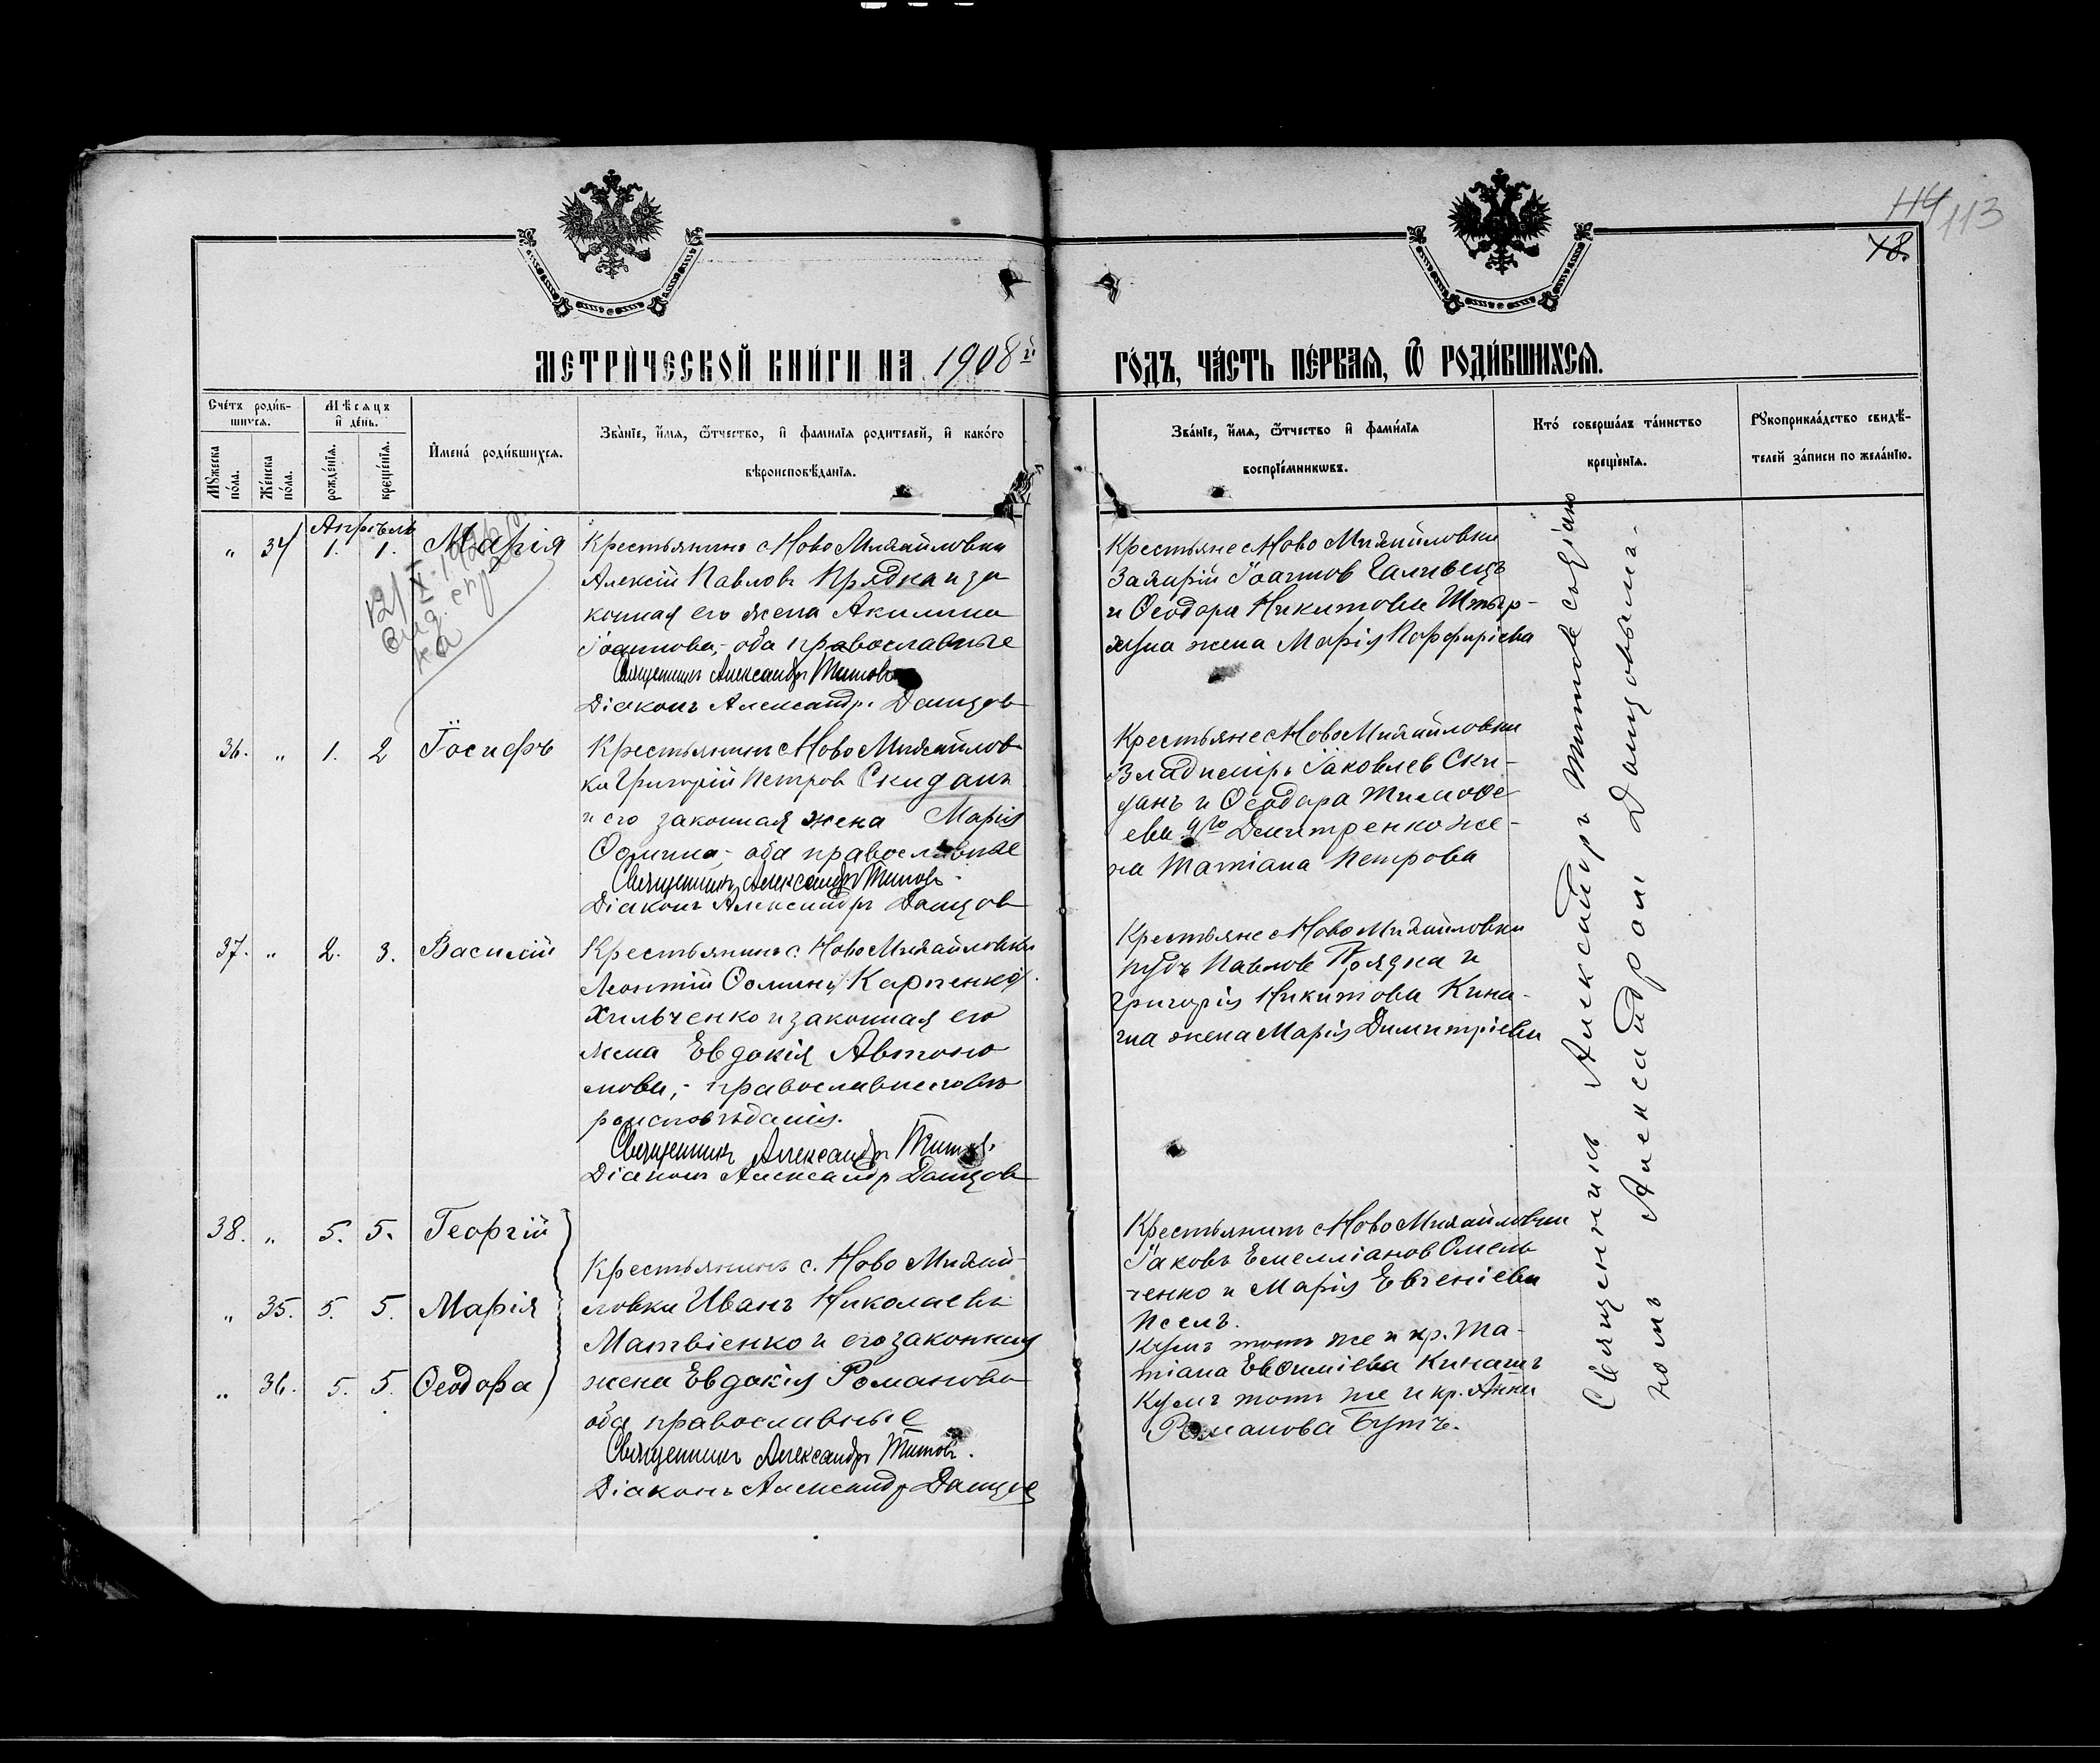 114 113
78.
МЕТРИ́ЧЕСКОЙ КНИ́ГИ НА 1908й ГО́ДЪ, ЧА́СТЬ ПЕ́РВАѦ, Ѿ РОДИ́ВШИХСѦ.
Сче́тъ роди́вшихсѧ.
Мꙋ́жеска по́ла.
Же́нска по́ла.
Мѣсѧцъ и҆ де́нь.
рожде́нїѧ.
креще́нїѧ.
И҆мена̀ роди́вшихсѧ.
Зва́нїе, и҆́мѧ, ѻ҆́тчество, и҆ фами́лїѧ роди́телей, и҆ како́го
вѣроисповѣ́данїѧ.
Зва́нїе, и҆́мѧ, ѻ҆́тчество и҆ фами́лїѧ
воспрїе́мникѡвъ.
Кто̀ соверша́лъ та́инство
креще́нїѧ.
Рꙋкоприкла́дство свидѣ́-
телей за́писи по жела́нїю.
Апрѣль
„ 34 1. 1. Марія
Крестьянинъ с Ново Михайловки
Алексій Павловъ Прядка и за
конная его жена Акилина
Іоаннова, оба православные
Священникъ Александръ Титовъ
Діаконъ Александръ Данцов
Крестьяне с Ново Михайловки
Захарій Іоаннов Галивецъ
и Ѳеодора Никитова
жена Марія Порфиріева
36. „ 1. 2 Іосифъ
Крестьянинъ с Ново Михайлов
ки Григорій Петров Скиданъ
и его законная жена Марія
Ѳомина, оба православные
Священникъ Александръ Титовъ.
Діаконъ Александръ Данцов
Крестьяне с Ново Михайловки
Владиміръ Іаковлев Ски-
данъ и Ѳеодора Тимоѳе
ева Дмитренко же-
на Татіана Петрова
37. „ 2. 3. Василій
Крестьянинъ с. Ново Михайловки
Леонтій Ѳоминъ Карпенко
Хильченко и законная его
жена Евдокія Автоно
мова, православнаго вѣ
роисповѣданія.
Священникъ Александръ Титовъ.
Діаконъ Александръ Данцов
Крестьяне с Ново Михайловки
Павлов Прядка и
Григорія Никитова Кина-
жена Марія Димитріева
38. „ 5. 5. Георгій
„ 35. 5. 5. Марія
„ 36. 5. 5. Ѳеодора
Крестьянинъ с. Ново Михай-
ловки Иванъ Николаевъ
Матвіенко и его законная
жена Евдокія Романова
оба православные
Священникъ Александръ Титовъ.
Діаконъ Александръ Данцов
Крестьянинъ с Ново Михайловки
Іаковъ Емеліанов Омель
ченко и Марія Евгеніева
Псёлъ.
Кумъ тотъ же и кр. Та-
тіана Евѳиміева
Кумъ тотъ же и кр. Анна
Романова Бутъ.
Священникъ Александръ Титовъ съ діако
номъ Александромъ Данцовымъ.